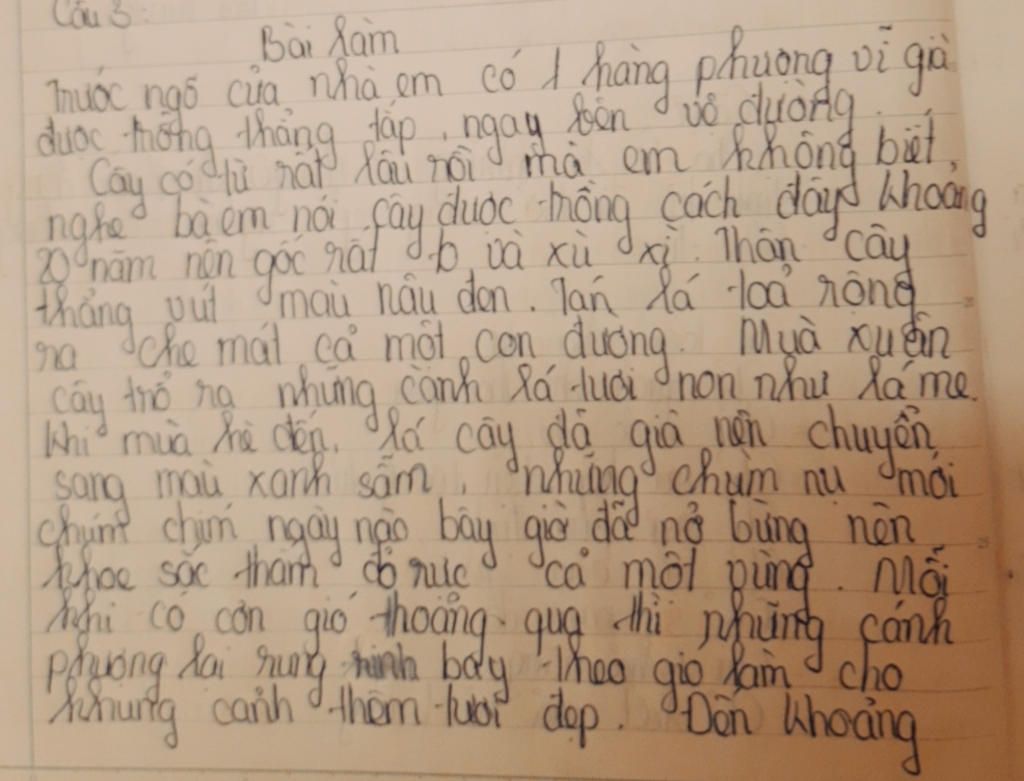 Câu 3:
Bài làm
Trước ngõ của nhà em có 1 hàng phượng vĩ già
được trồng thẳng tắp, ngay bên vô đường.
Cây có từ rất lâu rồi mà em không biết,
nghe bà em nói cây được trồng cách đây khoảng
20 năm nên gốc rất to và xù xì. Thân cây
thẳng vút màu nâu đen. Tán lá toả rộng
ra che mát cả một con đường. Muà xuân
cây trổ ra những cành lá tươi non như lá me.
Khi mùa hè đến, lá cây đã già nên chuyển
sang màu xanh sẫm, những chùm nụ mới
chúm chím ngày nào bây giờ đã nở bừng nên
khoe sắc thắm đỏ rực cả một vùng. Mỗi
khi có cơn gió thoảng qua thì những cánh
phượng lại rung rinh bay theo gió làm cho
khung cảnh thêm tươi đẹp. Đến khoảng